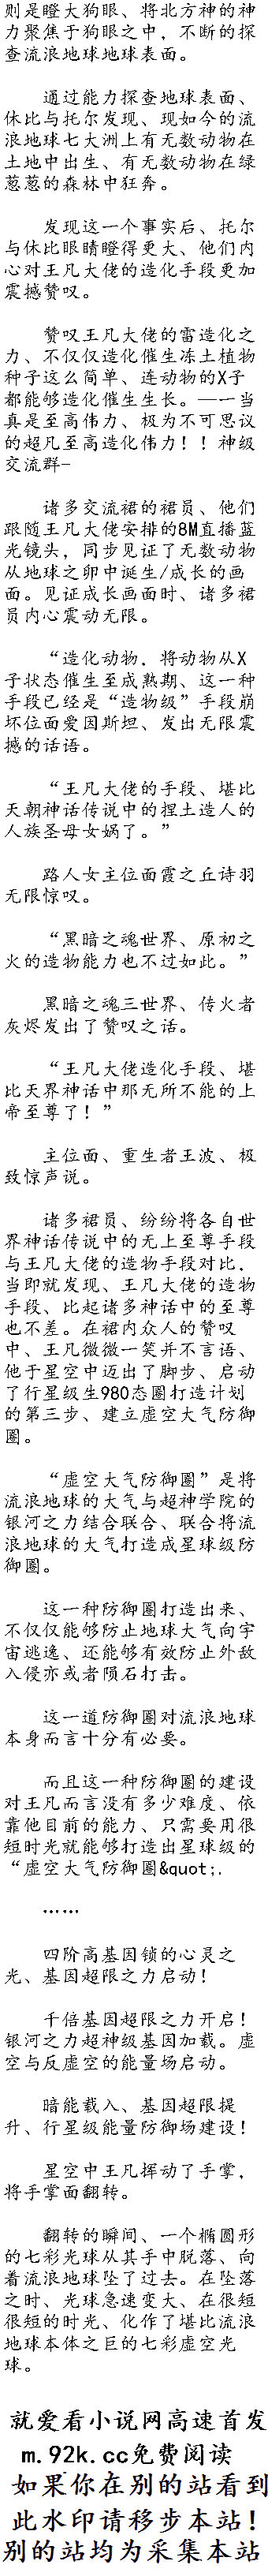 则是瞪大狗眼、将北方神的神
力聚焦于狗眼之中，不断的探
查流浪地球地球表面。
通过能力探查地球表面、
休比与托尔发现、现如今的流
浪地球七大洲上有无数动物在
土地中出生、有无数动物在绿
葱葱的森林中狂奔。
发现这一个事实后、托尔
与休比眼睛瞪得更大、他们内
心对王凡大佬的造化手段更加
震撼赞叹。
赞叹王凡大佬的雷造化之
力、不仅仅造化催生冻土植物
种子这么简单、连动物的X子
都能够造化催生生长。—一当
真是至高伟力、极为不可思议
的超凡至高造化伟力！！神级
交流群-
诸多交流裙的裙员、他们
跟随王凡大佬安排的8M直播蓝
光镜头，同步见证了无数动物
从地球之卵中诞生/成长的画
面。见证成长画面时、诸多裙
员内心震动无限。
“造化动物，将动物从X
子状态催生至成熟期、这一种
手段已经是“造物级”手段崩
坏位面爱因斯坦、发出无限震
撼的话语。
“王凡大佬的手段、堪比
天朝神话传说中的捏土造人的
人族圣母女娲了。”
路人女主位面霞之丘诗羽
无限惊叹。
“黑暗之魂世界、原初之
火的造物能力也不过如此。”
黑暗之魂三世界、传火者
灰烬发出了赞叹之话。
“王凡大佬造化手段、堪
比天界神话中那无所不能的上
帝至尊了！”
主位面、重生者王波、极
致惊声说。
诸多裙员、纷纷将各自世
界神话传说中的无上至尊手段
与王凡大佬的造物手段对比，
当即就发现、王凡大佬的造物
手段、比起诸多神话中的至尊
也不差。在裙内众人的赞叹
中、王凡微微一笑并不言语、
他于星空中迈出了脚步、启动
了行星级生980态圈打造计划
的第三步、建立虚空大气防御
圈。
“虚空大气防御圈”是将
流浪地球的大气与超神学院的
银河之力结合联合、联合将流
浪地球的大气打造成星球级防
御圈。
这一种防御圈打造出来、
不仅仅能够防止地球大气向宇
宙逃逸、还能够有效防止外敌
入侵亦或者陨石打击。
这一道防御圈对流浪地球
本身而言十分有必要。
而且这一种防御圈的建设
对王凡而言没有多少难度、依
靠他目前的能力、只需要用很
短时光就能够打造出星球级的
“虚空大气防御圈&quot;.
……
四阶高基因锁的心灵之
光、基因超限之力启动！
千倍基因超限之力开启！
银河之力超神级基因加载。虚
空与反虚空的能量场启动。
暗能载入、基因超限提
升、行星级能量防御场建设！
星空中王凡挥动了手掌，
将手掌面翻转。
翻转的瞬间、一个椭圆形
的七彩光球从其手中脱落、向
着流浪地球坠了过去。在坠落
之时、光球急速变大、在很短
很短的时光、化作了堪比流浪
地球本体之巨的七彩虚空光
球。
就爱看小说网高速首发
m.92k.cc免费阅读
如果你在别的站看到
此水印请移步本站！
别的站均为采集本站